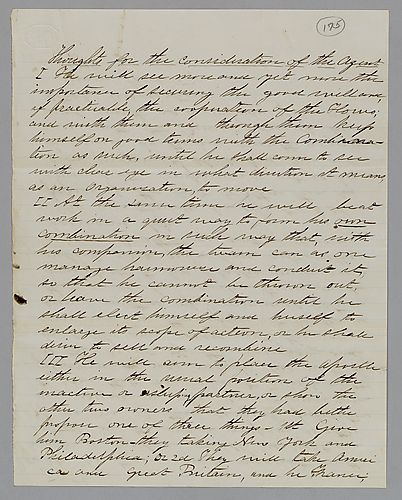 195
Thoughts for the consideration of the Agent
I He will see more and yet more the
importance of securing the good will and,
if practicable, the cooperation of the
and with them and through them keep
himself on good terms with the Combina-
tion as such, until he shall come to see
with clear eye in what direction it means,
as an organization, to move
II At the same time he will be at
work in a quiet way to form his own
combination in such way that, with
his companion, the team can as one
manage harmonize and conduct it,
so that he cannot be thrown out,
or leave the combination until he
shall elect himself and herself to
enlarge its scope of action, or he shall
desire to sell and recombine
III He will aim to place the
either in the usual position of the
inactive or partner, or show the
other two owners that they had better
propose one of three things - 1st Give
him Boston - they taking New York and
Philadelphia; or 2d They will take Ameri
ca and Great Britain, and he France;